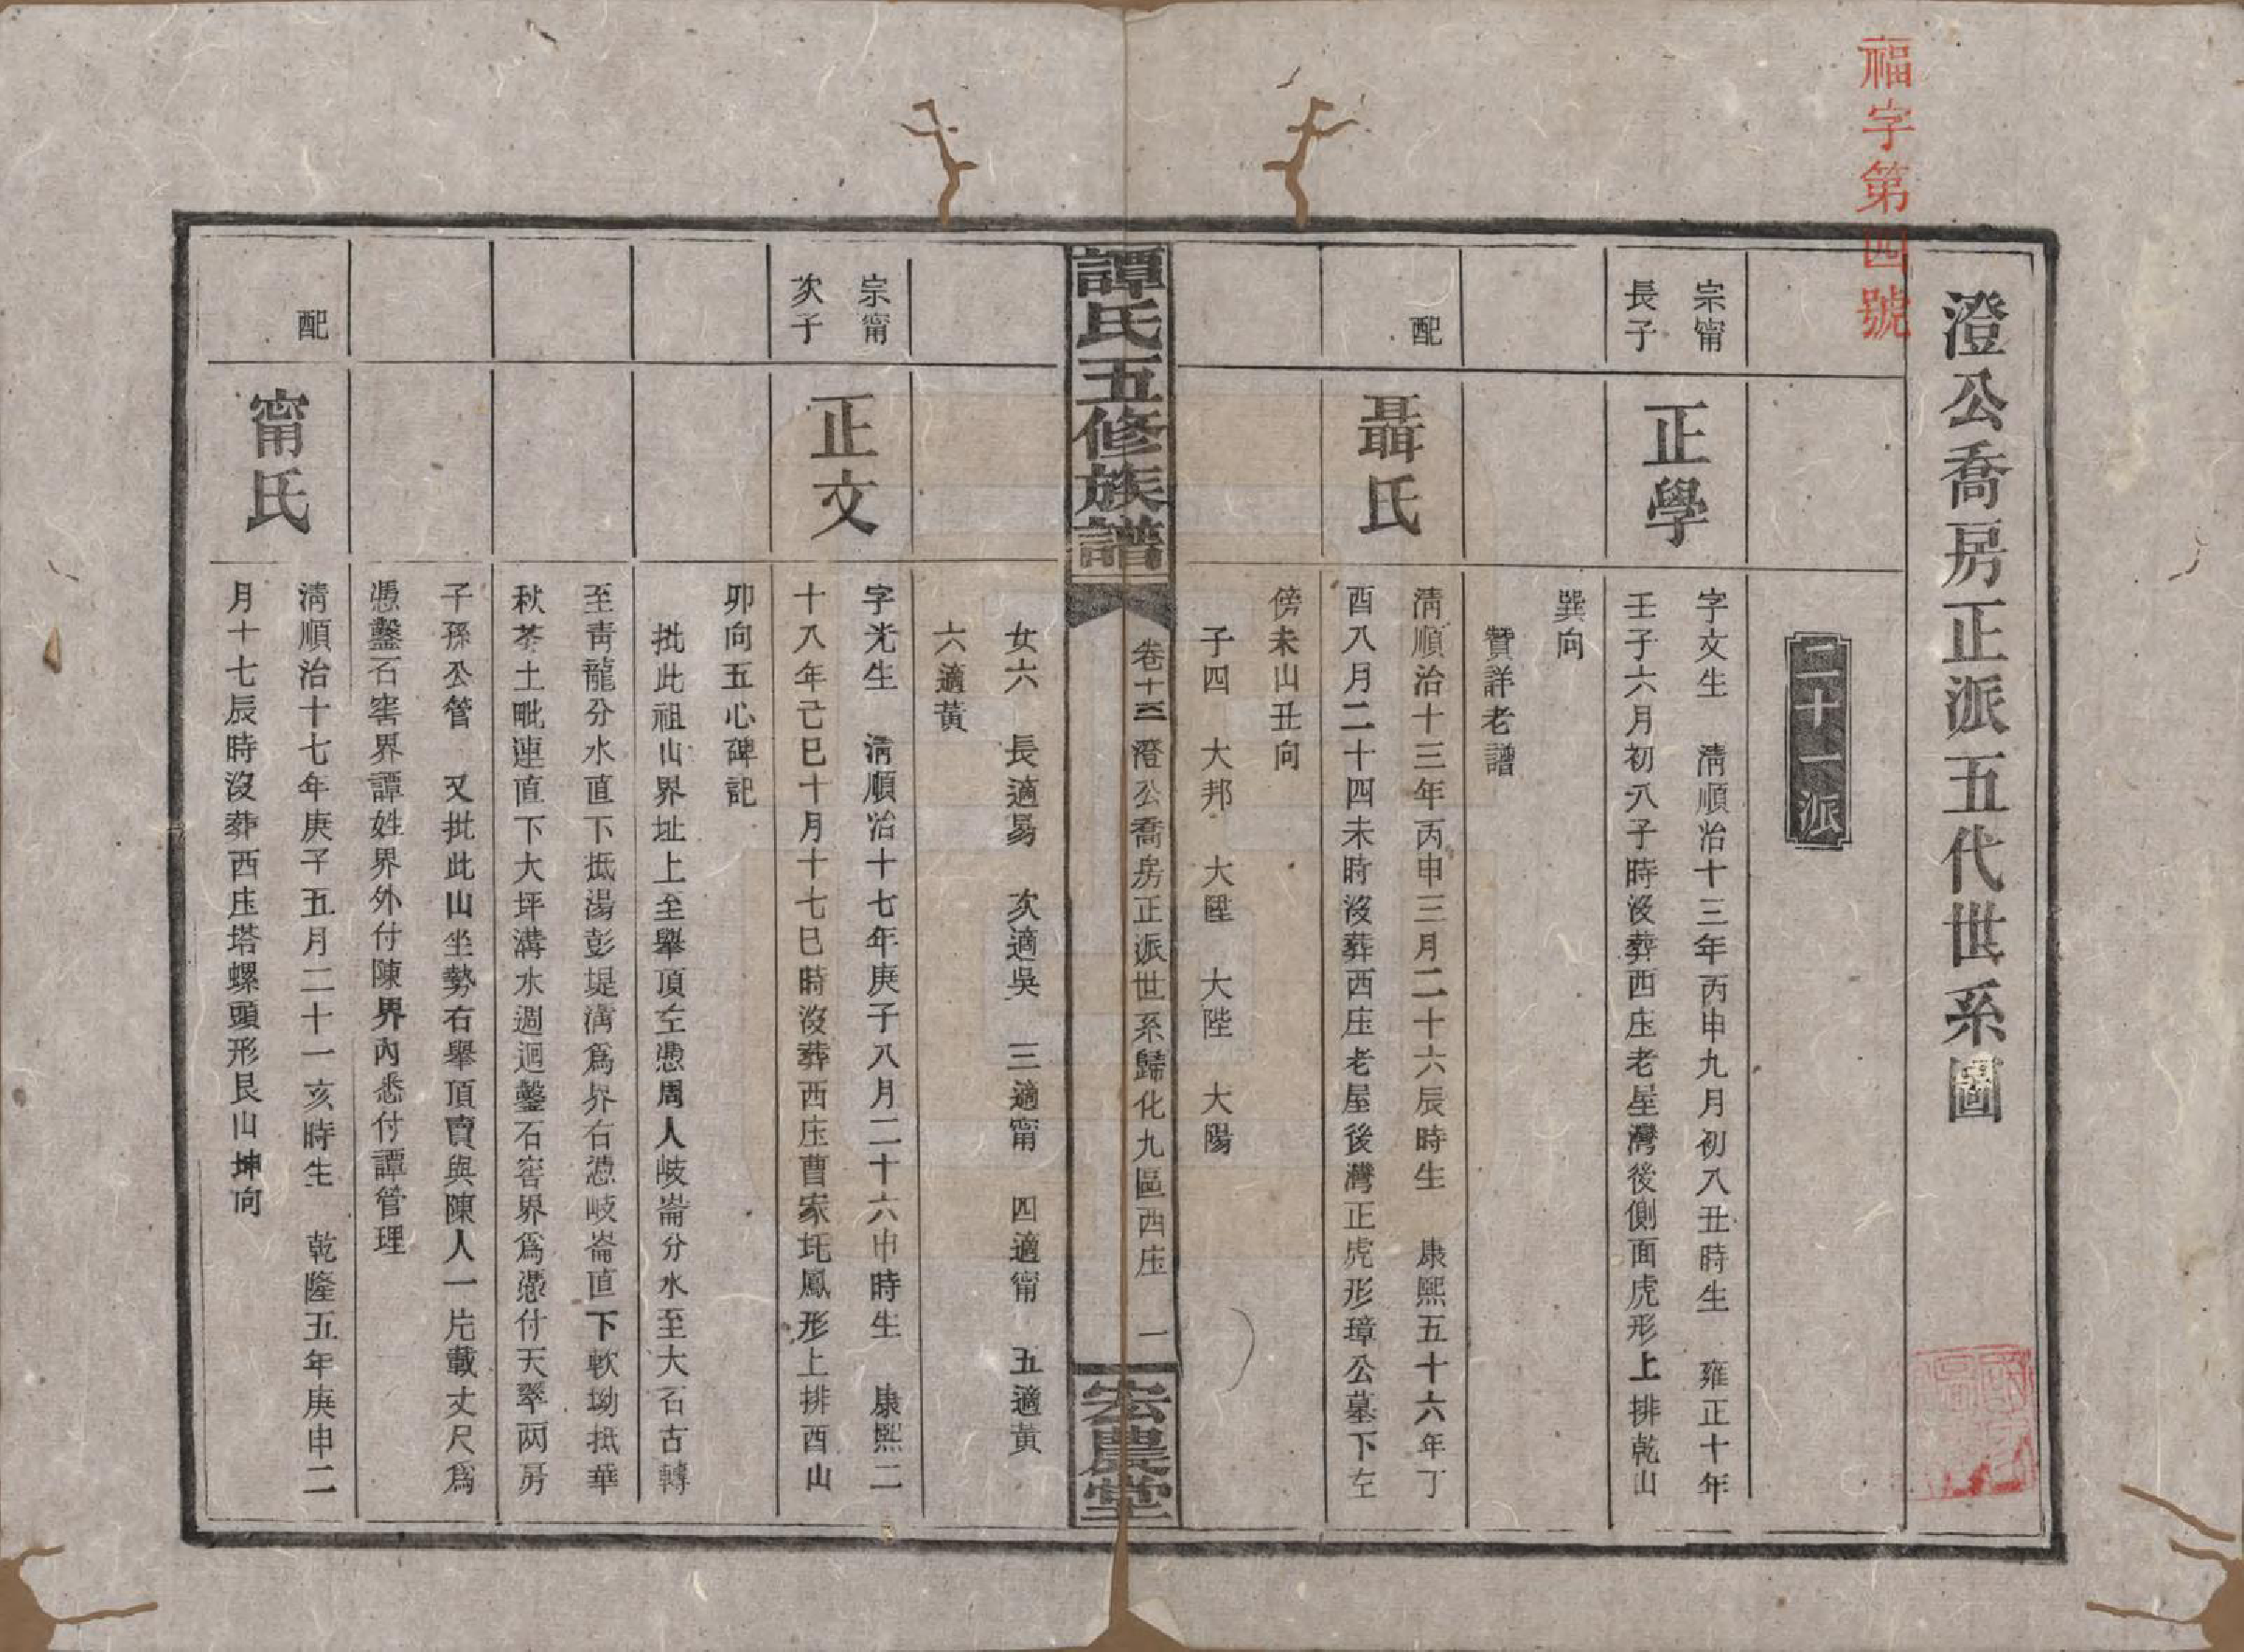 福字第四號
澄公喬房正派五代世系圖
二十一派
宗甯
長子
正學
字文生　淸順治十三年丙申九月初八丑時生　雍正十年
壬子六月初八子時沒葬西庄老屋灣後側面虎形上排乾山
巽向
贊詳老譜
配
聶氏
淸順治十三年丙申三月二十六辰時生　康熙五十六年丁
酉八月二十四未時沒葬西庄老屋後灣正虎形璋公墓下左
傍未山丑向
子四　大邦　大陞　大陛　大陽
譚氏五修族譜
卷十三　澄公喬房正派世系歸化九區西庄　一
宏農堂
女六　長適易　次適吳　三適甯　四適甯　五適黃
六適黃
宗甯
次子
正文
字光生　淸順治十七年庚子八月二十六申時生　康熙二
十八年己巳十月十七巳時沒葬西庄曹家坉鳳形上排酉山
卯向五心碑記
批此祖山界址上至舉頂左憑周人岐崙分水至大石古轉
至靑龍分水直下抵湯彭堤溝爲界右憑岐崙直下軟坳抵華
秋茶土毗連直下大坪溝水週迴鑿石窖界爲憑付天翠两房
子孫公管　又批此山坐勢右舉頂賣與陳人一片載丈尺爲
憑鑿石窖界譚姓界外付陳界內悉付譚管理
配
甯氏
淸順治十七年庚子五月二十一亥時生　乾隆五年庚申二
月十七辰時沒葬西庄塔螺頭形艮山坤向